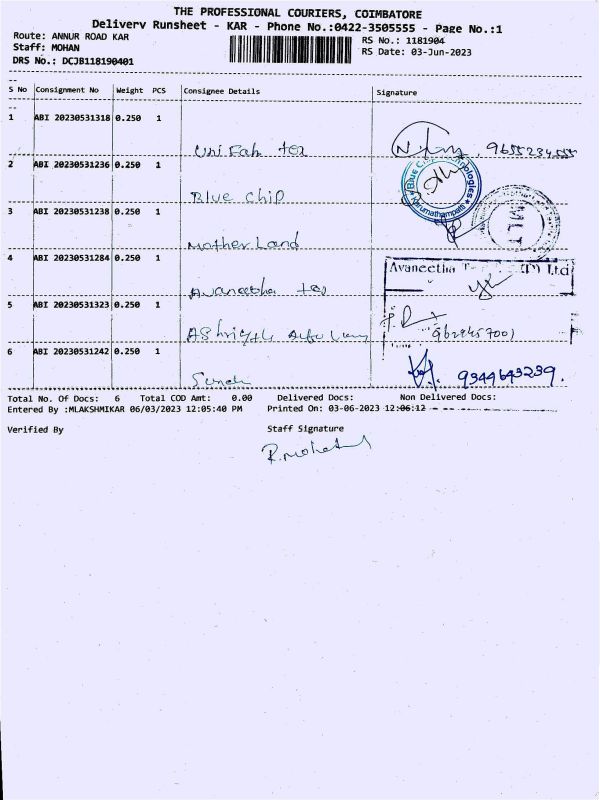 THE PROFESSIONAL COURIERS, COIMBATORE
Delivery Runsheet - KAR - Phone No.:0422-3505555 - Page No.:1
Route: ANNUR ROAD KAR
RS No.: 1181904
Staff: MOHAN
RS Date: 03-Jun-2023
DRS No.: DCJB118190401
S No Consignment No Weight PCS Consignee Details Signature
1 ABI 20230531318 0.250 1
Uni Fab tex
2 ABI 20230531236 0.250 1
Blue Chip
3 ABI 20230531238 0.250 1
Mother Land
MLT
4 ABI 20230531284 0.250 1
Avaneetha tex
Avaneetha (P) Ltd
5 ABI 20230531323 0.250 1
9629457001
6 ABI 20230531242 0.250 1
9344643239.
Total No. Of Docs: 6 Total COD Amt: 0.00 Delivered Docs: Non Delivered Docs:
Entered By :MLAKSHMIKAR 06/03/2023 12:05:40 PM Printed On: 03-06-2023 12:06:12
Verified By Staff Signature